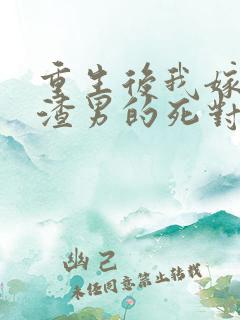 重生後我嫁
渣男的死對
幽己
未經同意禁止轉載